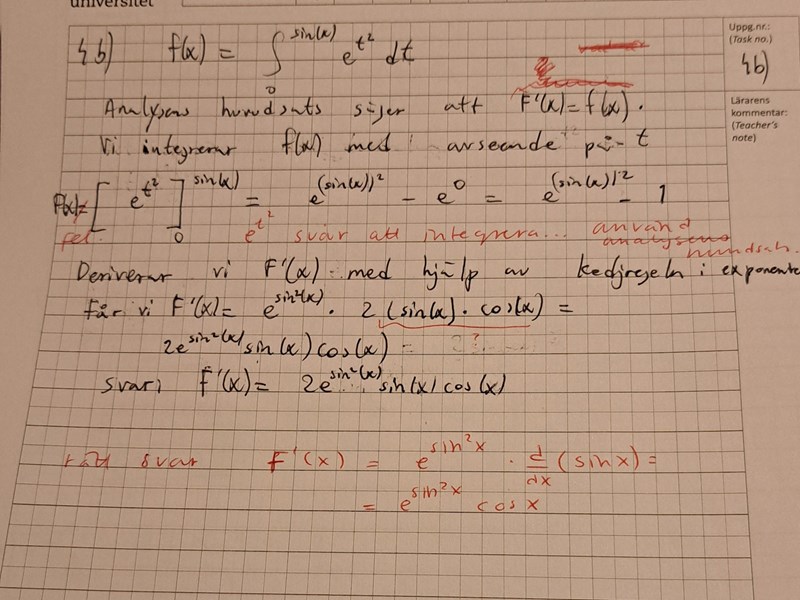 universitet
Uppg.nr.:
(Task no.)
4b)
Lärarens
kommentar:
(Teacher's
note)
4b) f(x) = ∫₀^sin(x) e^t² dt
Analysens huvudsats säger att F'(x) = f(x).
Vi integrerar f(x) med avseende på t
F(x) = [e^t²]₀^sin(x) = e^(sin(x))² - e^0 = e^(sin(x))^2 - 1
fel. e^t² svår att integrera... använd
analysens
hundsats.
Deriverar vi F'(x) med hjälp av kedjregeln i exponente
får vi F'(x) = e^sin²(x) · 2 (sin(x) · cos(x)) =
2e^sin²(x) sin(x) cos(x) = ?
svar: F'(x) = 2e^sin²(x) sin(x) cos(x)
rätt svar F'(x) = e^sin²x · d/dx (sin x) =
= e^sin²x cos x